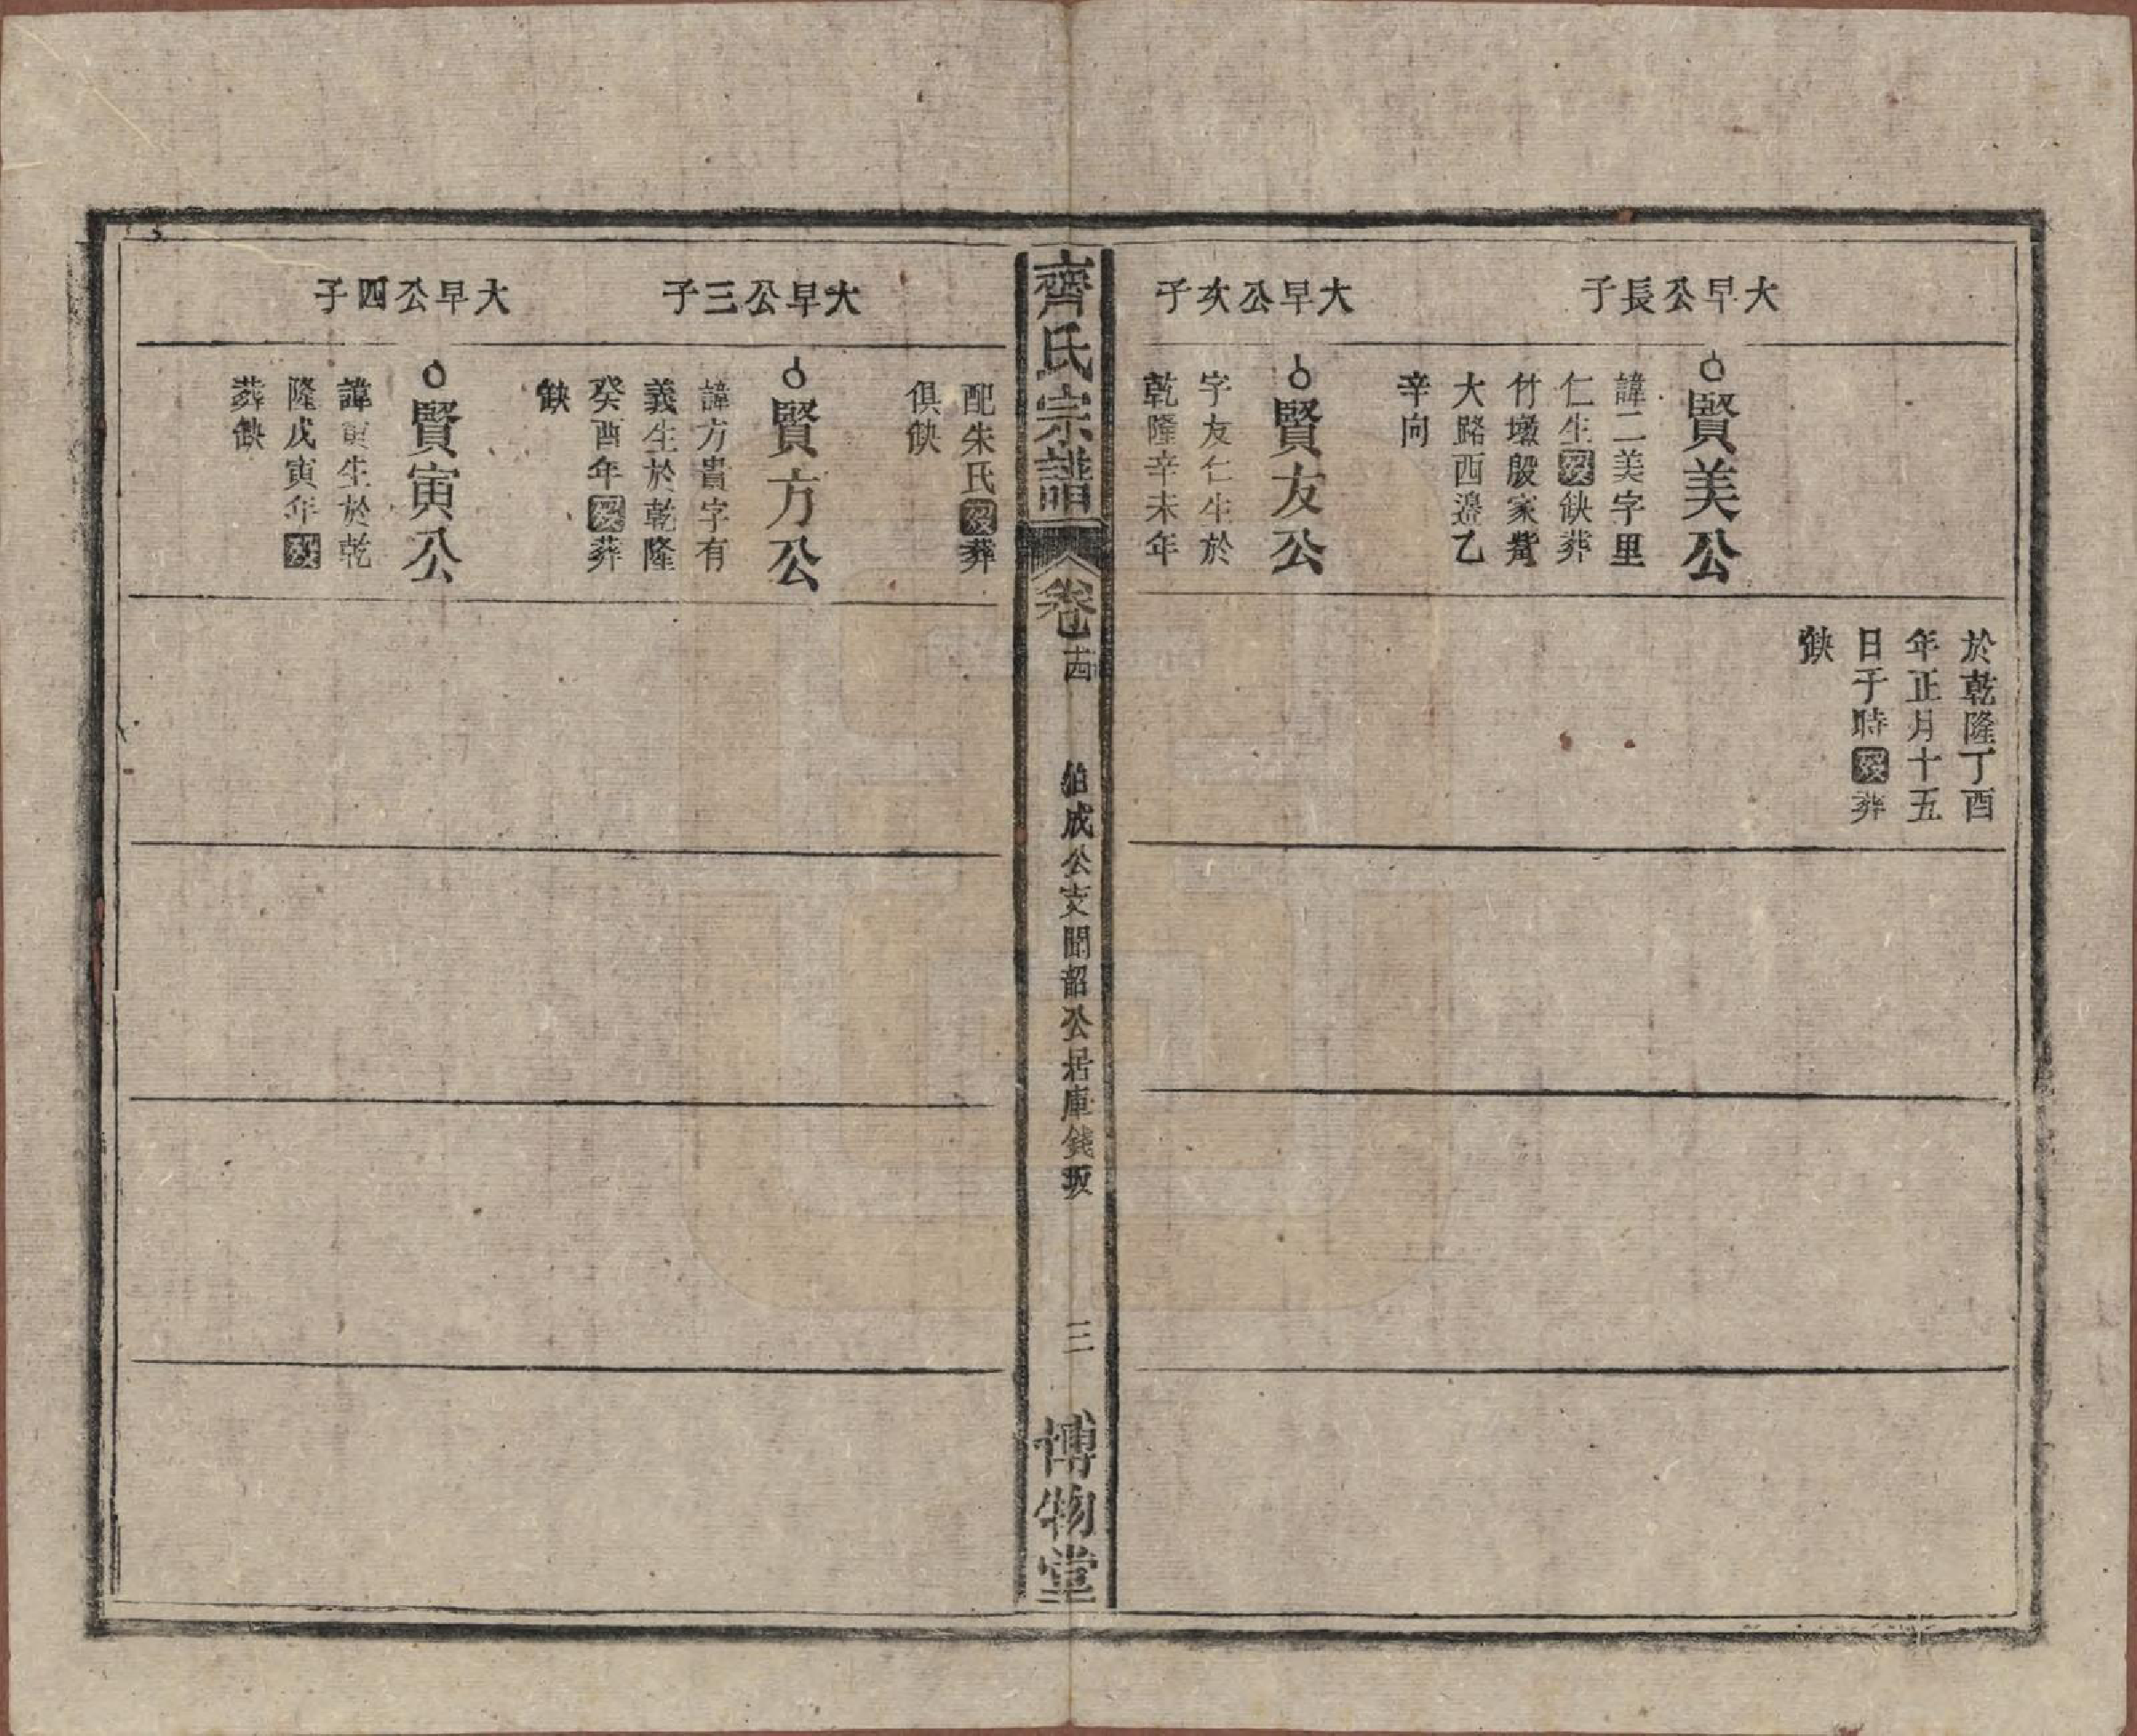 大早公長子
賢美公
諱二美字里
仁生歿缺葬
竹墩殷家凴
大路西邉乙
辛向
大早公次子
賢友公
字友仁生於
乾隆辛未年
於乾隆丁酉
年正月十五
日子時歿葬
缺
齊氏宗譜
卷十四
伯成公支聞韶公居庫錢坂
三
博物堂
配朱氏歿葬
俱缺
大早公三子
賢方公
諱方貴字有
義生於乾隆
癸酉年歿葬
缺
大早公四子
賢寅公
諱寅生於乾
隆戊寅年歿
葬缺